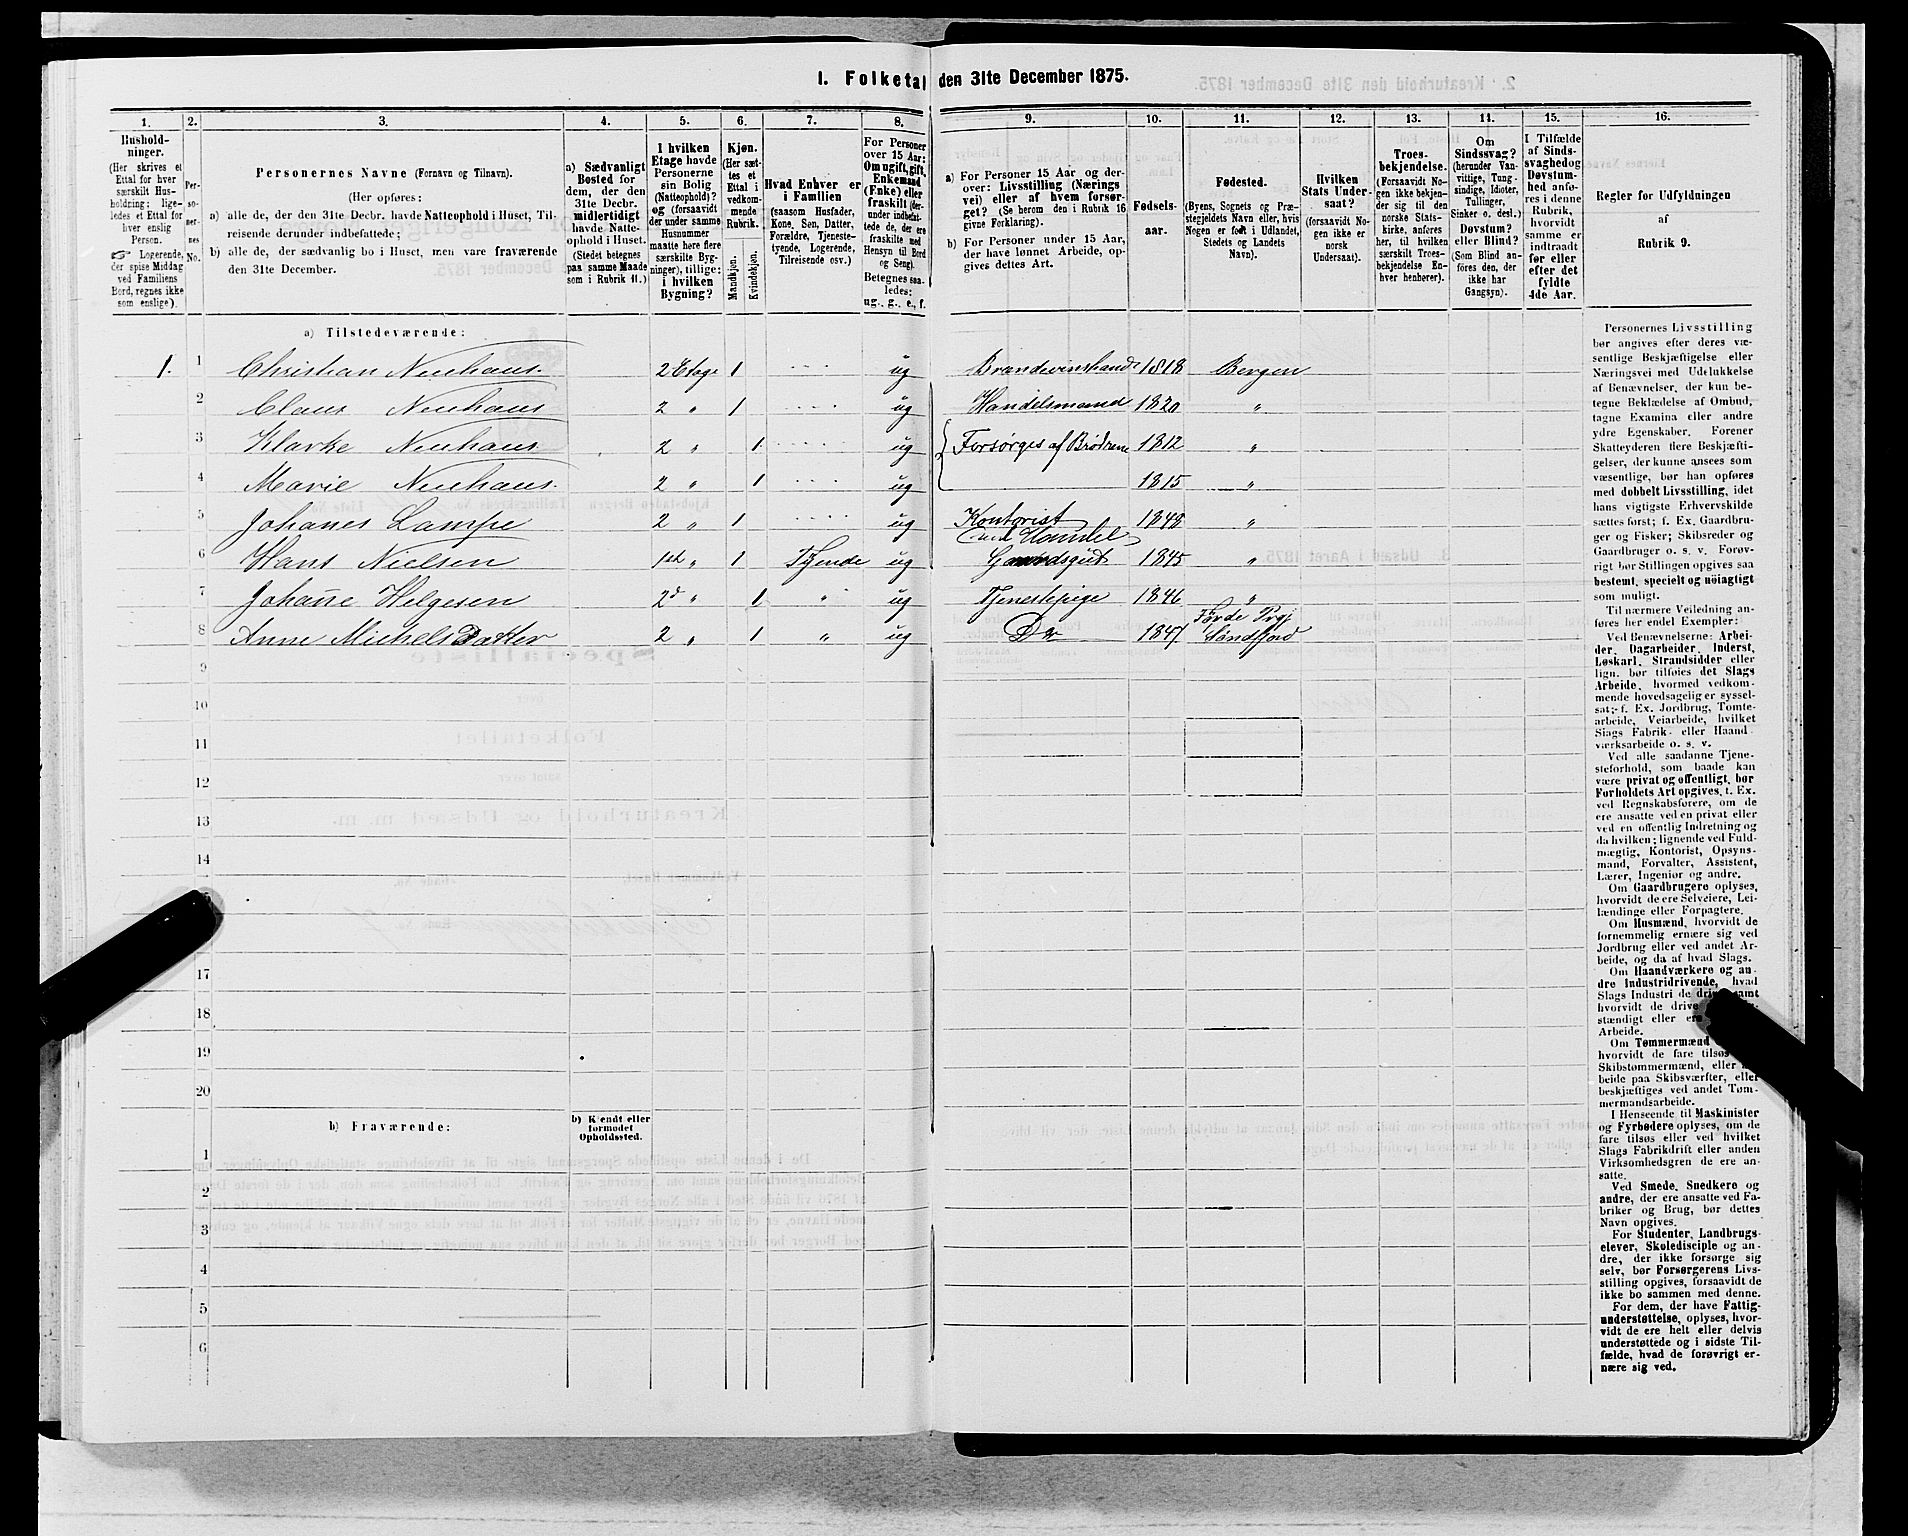 1. Folketal den 31te December 1875.
1.
2.
3.
4.
5.
6.
7.
8.
9.
10.
11.
12.
13.
14.
15.
16.
Hushold-
ninger.
(Her skrives et
Ettal for hver
særskilt Hus-
holdning; lige-
ledes et Ettal for
hver enslig
Person.
☞ Logerende,
der spise Middag
ved Familiens
Bord, regnes ikke
som enslige).
Per-
so-
ner-
nes
No.
Personernes Navne (Fornavn og Tilnavn).
(Her opføres:
a) alle de, der den 31te Decbr. havde Natteophold i Huset, Til-
reisende derunder indbefattede;
b) alle de, der sædvanlig bo i Huset, men vare fraværende
den 31te December.
a) Sædvanligt
Bosted for
dem, der den
31te Decbr.
midlertidigt
havde Natte-
ophold i Huset.
(Stedet betegnes
paa samme Maade
som i Rubrik 11.)
I hvilken
Etage havde
Personerne
sin Bolig
(Natteophold)?
og (forsaavidt
der under samme
Husnummer
maatte høre flere
særskilte Byg-
ninger), tillige:
i hvilken
Bygning?
Kjøn.
(Her sæt-
tes et
Ettal i
vedkom-
mende
Rubrik.
Mandkjøn.
Kvindekjøn.
Hvad Enhver er
i Familien
(saasom Husfader,
Kone, Søn, Datter,
Forældre, Tjeneste-
tyende, Logerende,
Tilreisende osv.)
For Personer
over 15 Aar:
Om ugift, gift,
Enkemand
(Enke) eller
fraskilt (der-
under indbefat-
tede de, der ere
fraskilte med
Hensyn til Bord
og Seng).
Betegnes saa-
ledes:
ug., g., e., f.
a) For Personer 15 Aar og der-
over: Livsstilling (Nærings
vei) eller af hvem forsør-
get? (Se herom den i Rubrik 16
givne Forklaring).
b) For Personer under 15 Aar,
der have lønnet Arbeide, op-
gives dettes Art.
Fødsels-
aar.
Fødested.
(Byens, Sognets og Præ-
stegjeldets Navn eller, hvis
Nogen er født i Udlandet,
Stedets og Landets
Navn).
Hvilken
Stats Under-
saat?
(forsaavidt No-
gen ikke er
norsk
Undersaat).
Troes-
bekjendelse.
(Forsaavidt No-
gen ikke bekjen-
der sig til den
norske Stats-
kirke, anføres
her, til hvilken
særskilt Troes-
bekjendelse En-
hver henhører).
Om
Sindssvag?
(herunder Van-
vittige, Tung-
sindige, Idioter,
Tullinger,
Sinker o. desl.)
Døvstum?
eller Blind?
(Som Blind an-
føres den, der
ikke har
Gangsyn).
I Tilfælde
af Sinds-
svaghed og
Døvstum-
hed anfø-
res i denne
Rubrik,
hvorvidt
samme er
indtraadt
før eller
efter det
fyldte
4de Aar.
Regler for Udfyldningen
af
Rubrik 9.
a) Tilstedeværende:
1. 1 Christian Neuhaus. 2 Etage 1 ug Brandevinshand 1818 Bergen
2 Claus Neuhaus 2 " 1 ug Handelsmand 1820 "
3 Klarke Neuhaus 2 " 1 ug Forsørges af Brødrene 1812 "
4 Marie Neuhaus. 2 " 1 ug 1815 "
5 Johanes Lampe 2 " 1 ug Kontorist ved Handel 1848 "
6 Hans Nielsen 1ste " 1 Tjende ug Gaardsgut 1845 "
7 Johañe Helgesen 2d " 1 " ug Tjenestepige 1846 "
8 Anne Michels Datter 2 " 1 " ug Do 1847 Førde Prgj Søndfjord
9
10
11
12
13
14
17
18
19
20
b) Fraværende:
b) Kjendt eller
formodet
Opholdssted.
1
2
3
4
5
6
Personernes Livsstilling
bør angives efter deres væ-
sentlige Beskjæftigelse eller
Næringsvei med Udelukkelse
af Benævnelser, der kun be-
tegne Beklædelse af Ombud,
tagne Examina eller andre
ydre Egenskaber. Forener
Skatteyderen flere Beskjæfti-
gelser, der kunne ansees som
væsentlige, bør han opføres
med dobbelt Livsstilling, idet
hans vigtigste Erhvervskilde
sættes først; f. Ex. Gaardbru-
ger og Fisker; Skibsreder og
Gaardbruger o. s. v. Forøv-
rigt bør Stillingen opgives saa
bestemt, specielt og nøiagtigt
som muligt.
Til nærmere Veiledning an-
føres her endel Exempler:
Ved Benævnelserne: Arbei-
der, Dagarbeider, Inderst,
Løskarl, Strandsidder eller
lign. bør tilføies det Slags
Arbeide, hvormed vedkom-
mende hovedsagelig er syssel-
sat; f. Ex. Jordbrug, Tomte-
arbeide, Veiarbeide, hvilket
Slags Fabrik- eller Haand-
værksarbeide o. s. v.
Ved alle saadanne Tjene-
steforhold, som baade kan
være privat og offentligt, bør
Forholdets Art opgives, t. Ex.
ved Regnskabsførere, om de
ere ansatte ved en privat eller
ved en offentlig Indretning og
da hvilken; lignende ved Fuld-
mægtig, Kontorist, Opsyns-
mand, Forvalter, Assistent,
Lærer, Ingeniør og andre.
Om Gaardbrugere oplyses,
hvorvidt de ere Selveiere, Lei-
lændinge eller Forpagtere.
Om Husmænd, hvorvidt de
fornemmelig ernære sig ved
Jordbrug eller ved andet Ar-
beide, og da af hvad Slags.
Om Haandværkere og an-
dre Industridrivende, hvad
Slags Industri de drive samt
hvorvidt de drive
stændigt eller
Arbeide.
Om Tømmermænd
hvorvidt de fare tilsøs
Skibstømmermænd, eller
beide paa Skibsværfter, eller
beskjæftiges ved andet Tøm-
mermandsarbeide.
I Henseende til Maskinister
og Fyrbødere oplyses, om de
fare tilsøs eller ved hvilket
Slags Fabrikdrift eller anden
Virksomhedsgren de ere an-
satte.
Ved Smede, Snedkere og
andre, der ere ansatte ved Fa-
briker og Brug, bør dettes
Navn opgives.
For Studenter, Landbrugs-
elever, Skoledisciple og an-
dre, der ikke forsørge sig
selv, bør Forsørgerens Livs-
stilling opgives, forsaavidt de
ikke bo sammen med denne.
For dem, der have Fattig-
understøttelse, oplyses, hvor-
vidt de ere helt eller delvis
understøttede og i sidste Til-
fælde, hvad de forøvrigt er-
nære sig ved.